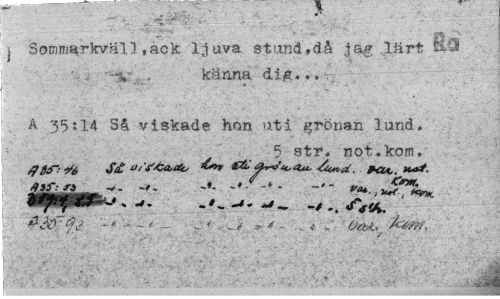 Sommarkväll,ack ljuva stund,då jag lärt Ro
känna dig...
A 35:14 Så viskade hon uti grönan lund.
5 str. not.kom.
A35:46 Så viskade hon uti grönan lund. var. not. kom.
A35:53 -"- -"- -"- -"- -"- -"- var., not., kom.
-"- -"- -"- -"- -"- -"- 5 str.
A35:93 -"- -"- -"- -"- -"- -"- var., kom.